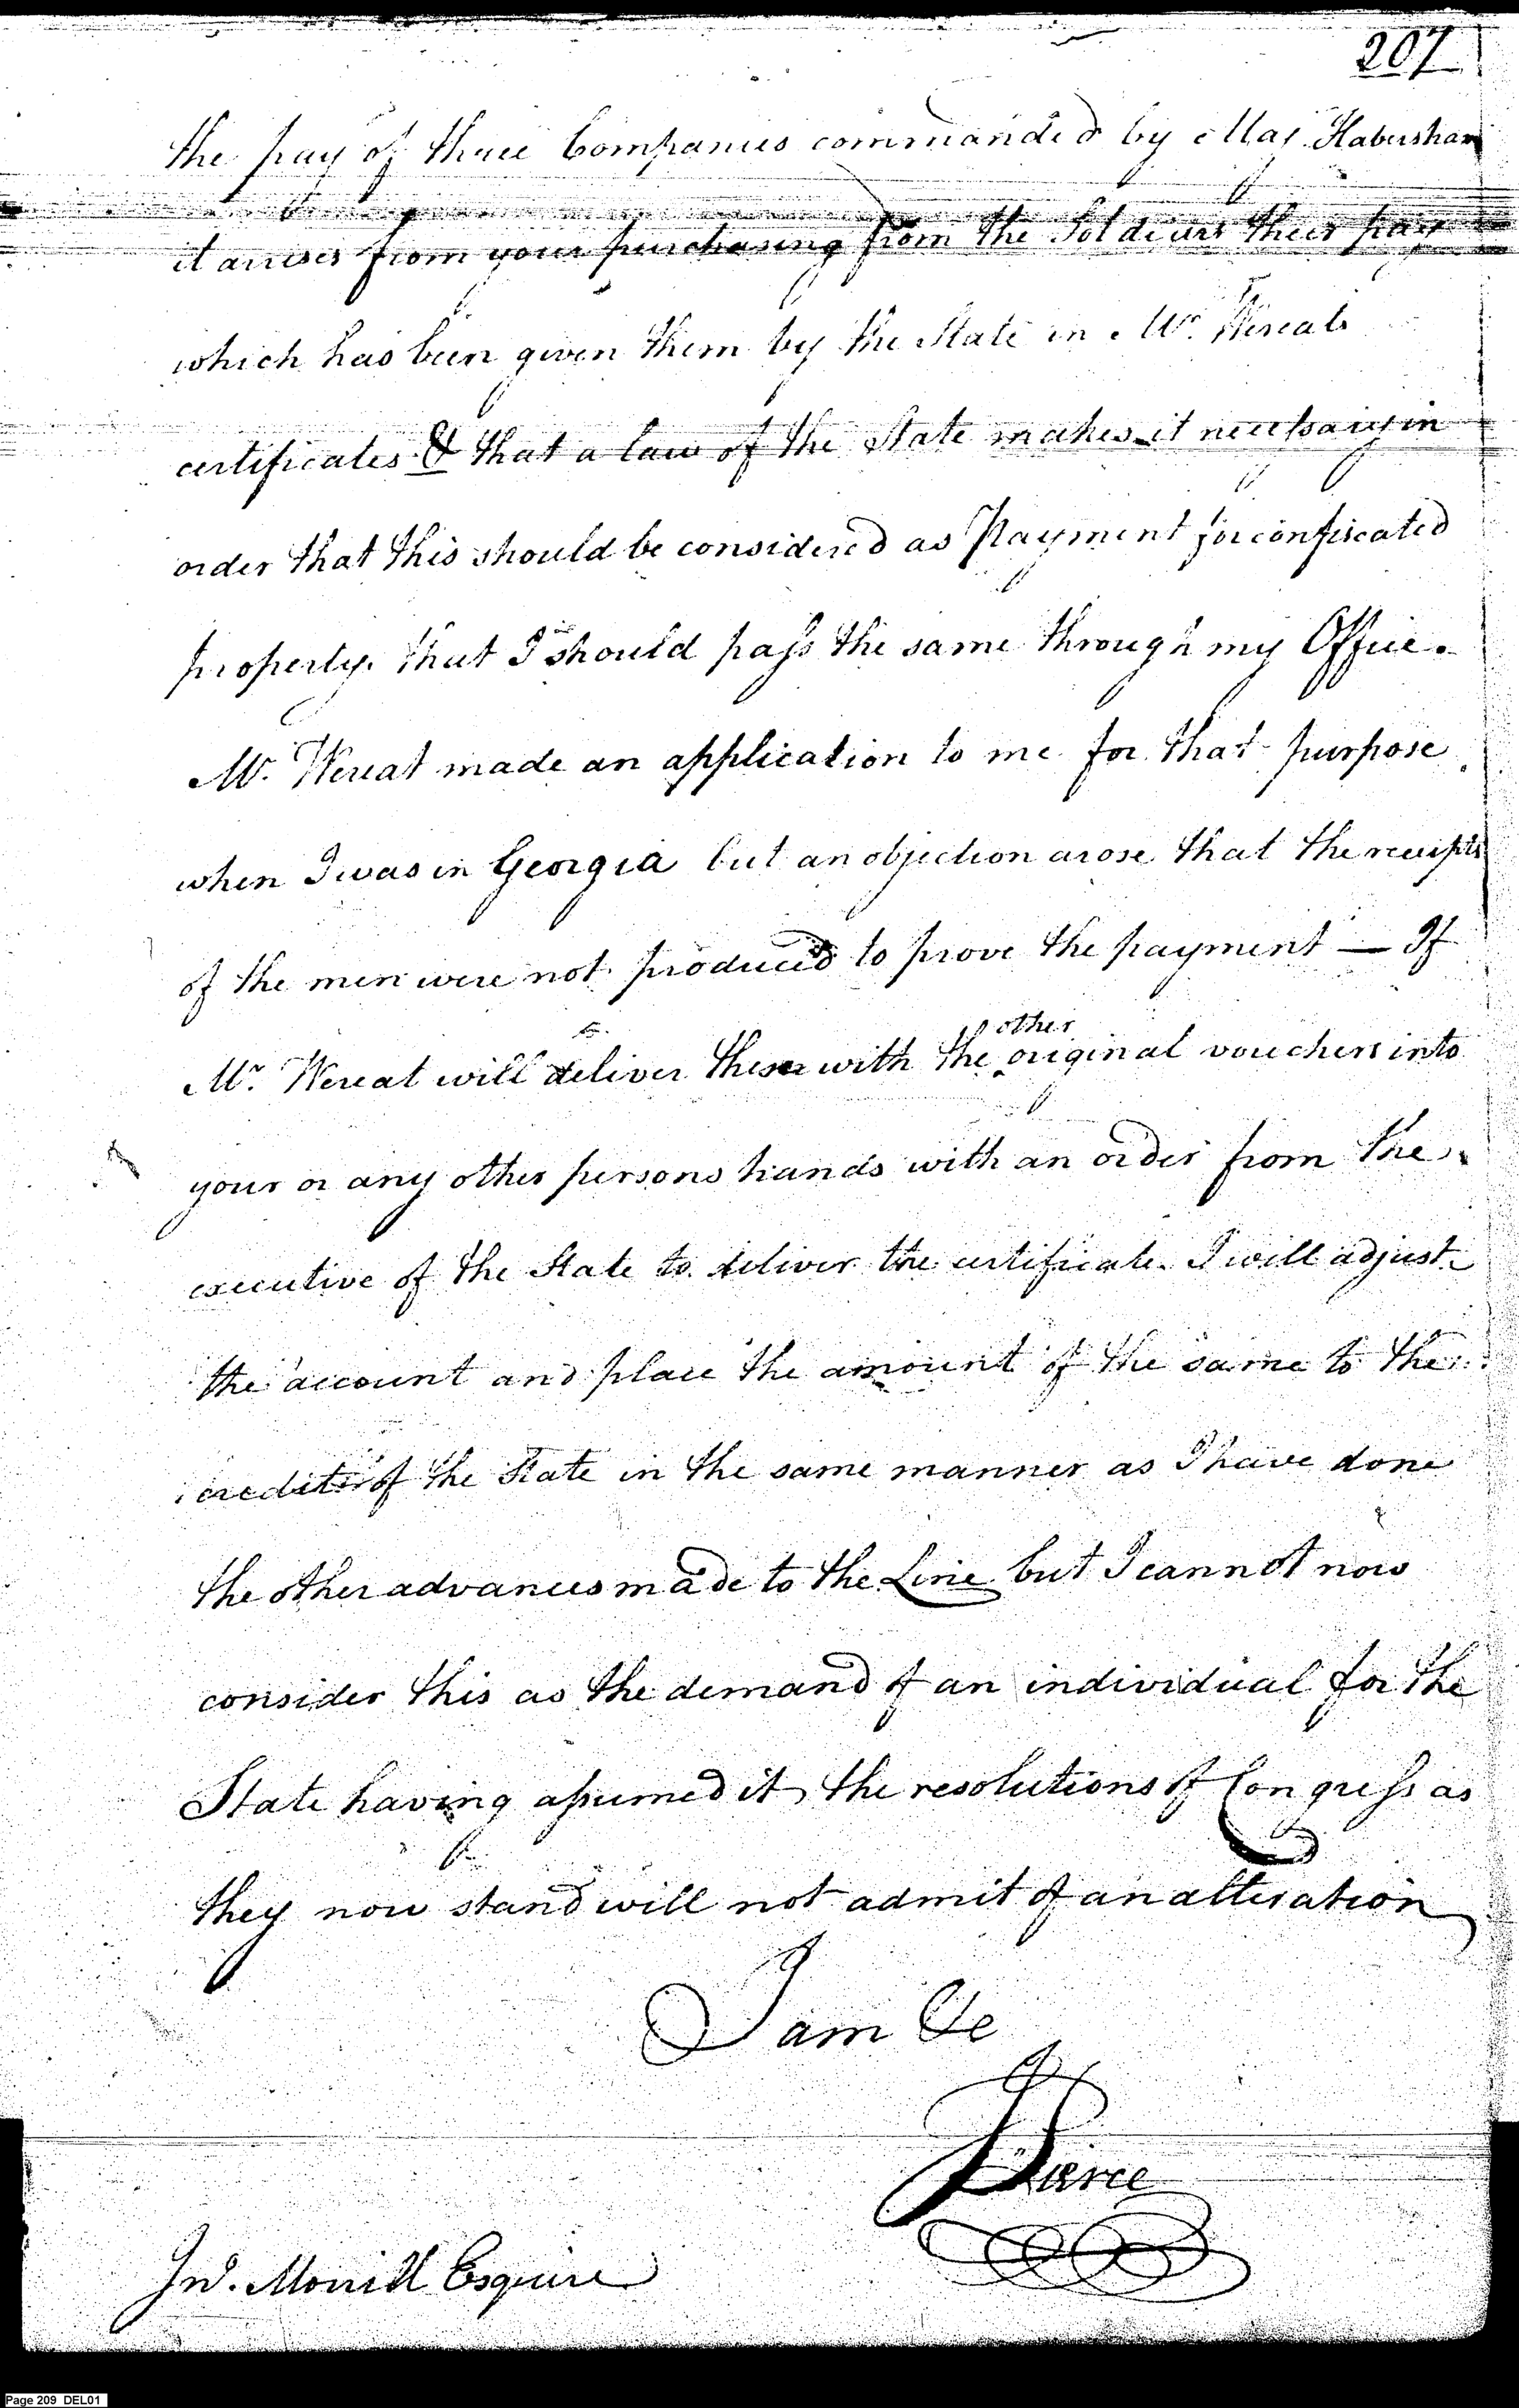 207
the pay of three Companies commanded by Maj. Habersham
it arrises from your purchasing from the Soldiers their pay
which has been given them by the State in Mr. Wereats
certificates & that a law of the State makes it necessary in
order that this should be considered as Payment for confiscated
property. that I should pass the same through my Office.
Mr. Wereat made an application to me for that purpose
when I was in Georgia but an objection arose that the receipts
of the men were not produced to prove the payment — If
other
Mr. Wereat will deliver these with the original vouchers into
your or any other persons hands with an order from the
executive of the State to deliver the certificate. I will adjust
the account and place the amount of the same to the
credit of the State in the same manner as I have done
the other advances made to the Line but I cannot now
consider this as the demand of an individual for the
State having assumed it, the resolutions of Congress as
they now stand will not admit of an alteration
I am &c
Pierce
Jno. Esquire
Page 209 DEL01